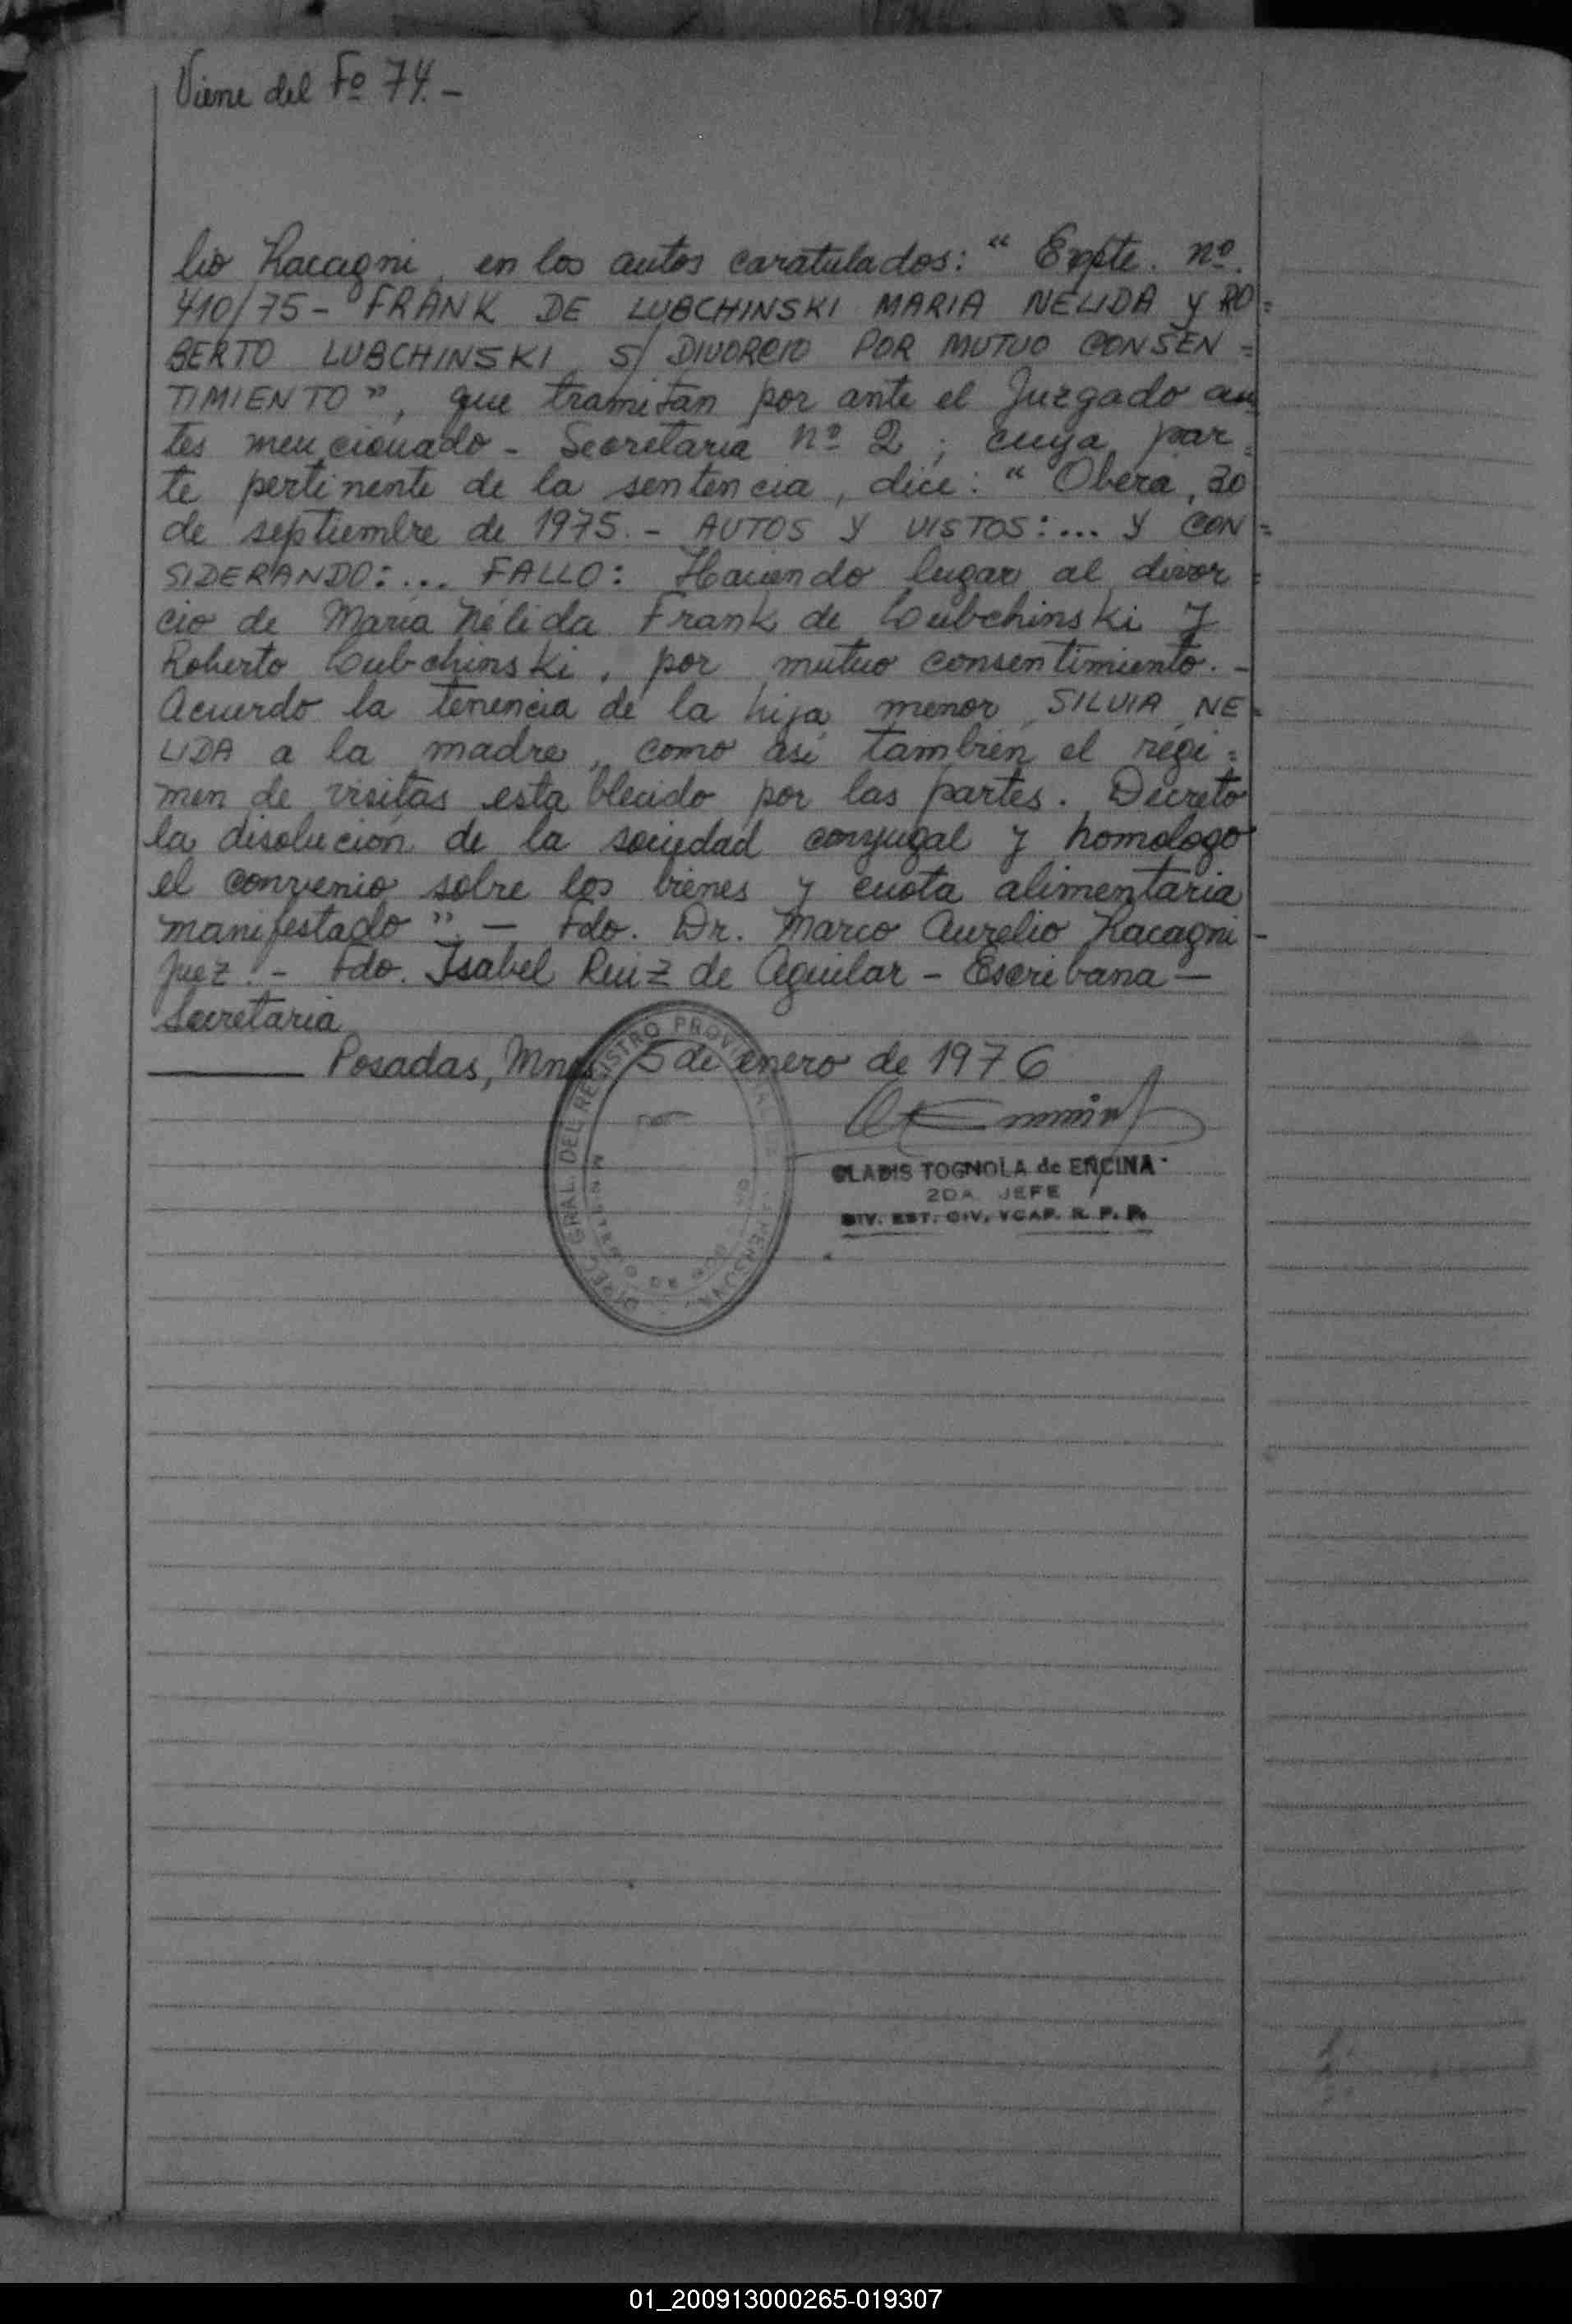 Viene del Fº 74.-
lio Racagni, en los autos caratulados: " Expte. nº.
410/75 - FRANK DE LUBCHINSKI MARIA NELIDA Y RO=
BERTO LUBCHINSKI S/ DIVORCIO POR MUTUO CONSEN=
TIMIENTO", que tramitan por ante el Juzgado an
tes mencionado - Secretaría nº 2; cuya par=
te pertinente de la sentencia, dice: " Oberá, 30
de septiembre de 1975.- AUTOS Y VISTOS:... Y CON=
SIDERANDO:... FALLO: Haciendo lugar al divor=
cio de María Nélida Frank de Lubchinski y
Roberto Lubchinski, por mutuo consentimiento.-
Acuerdo la tenencia de la hija menor, SILVIA NE=
LIDA a la madre, como así también el regi=
men de visitas establecido por las partes. Decreto
la disolución de la sociedad conyugal y homologo
el convenio sobre los bienes y cuota alimentaria
manifestado".- Fdo. Dr. Marco Aurelio Racagni-
Juez.- Fdo. Isabel Ruiz de Aguilar - Escribana-
Secretaria
Posadas, Mnes. 5 de enero de 1976
DIREC. GRAL. DEL REGISTRO PROVINCIAL DE PERSONAS
GLADIS TOGNOLA de ENCINA
2DA. JEFE
DIV. EST. CIV. Y CAP. R. P. P.
01_200913000265-019307